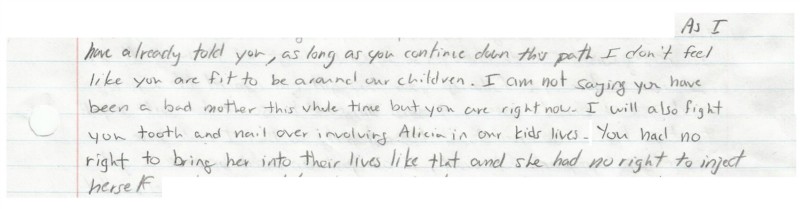 As I
have already told you, as long as you continue down this path I don't feel
like you are fit to be around our children. I am not saying you have
been a bad mother this whole time but you are right now. I will also fight
you tooth and nail over involving Alicia in our kids lives. You had no
right to bring her into their lives like that and she had no right to inject
herself